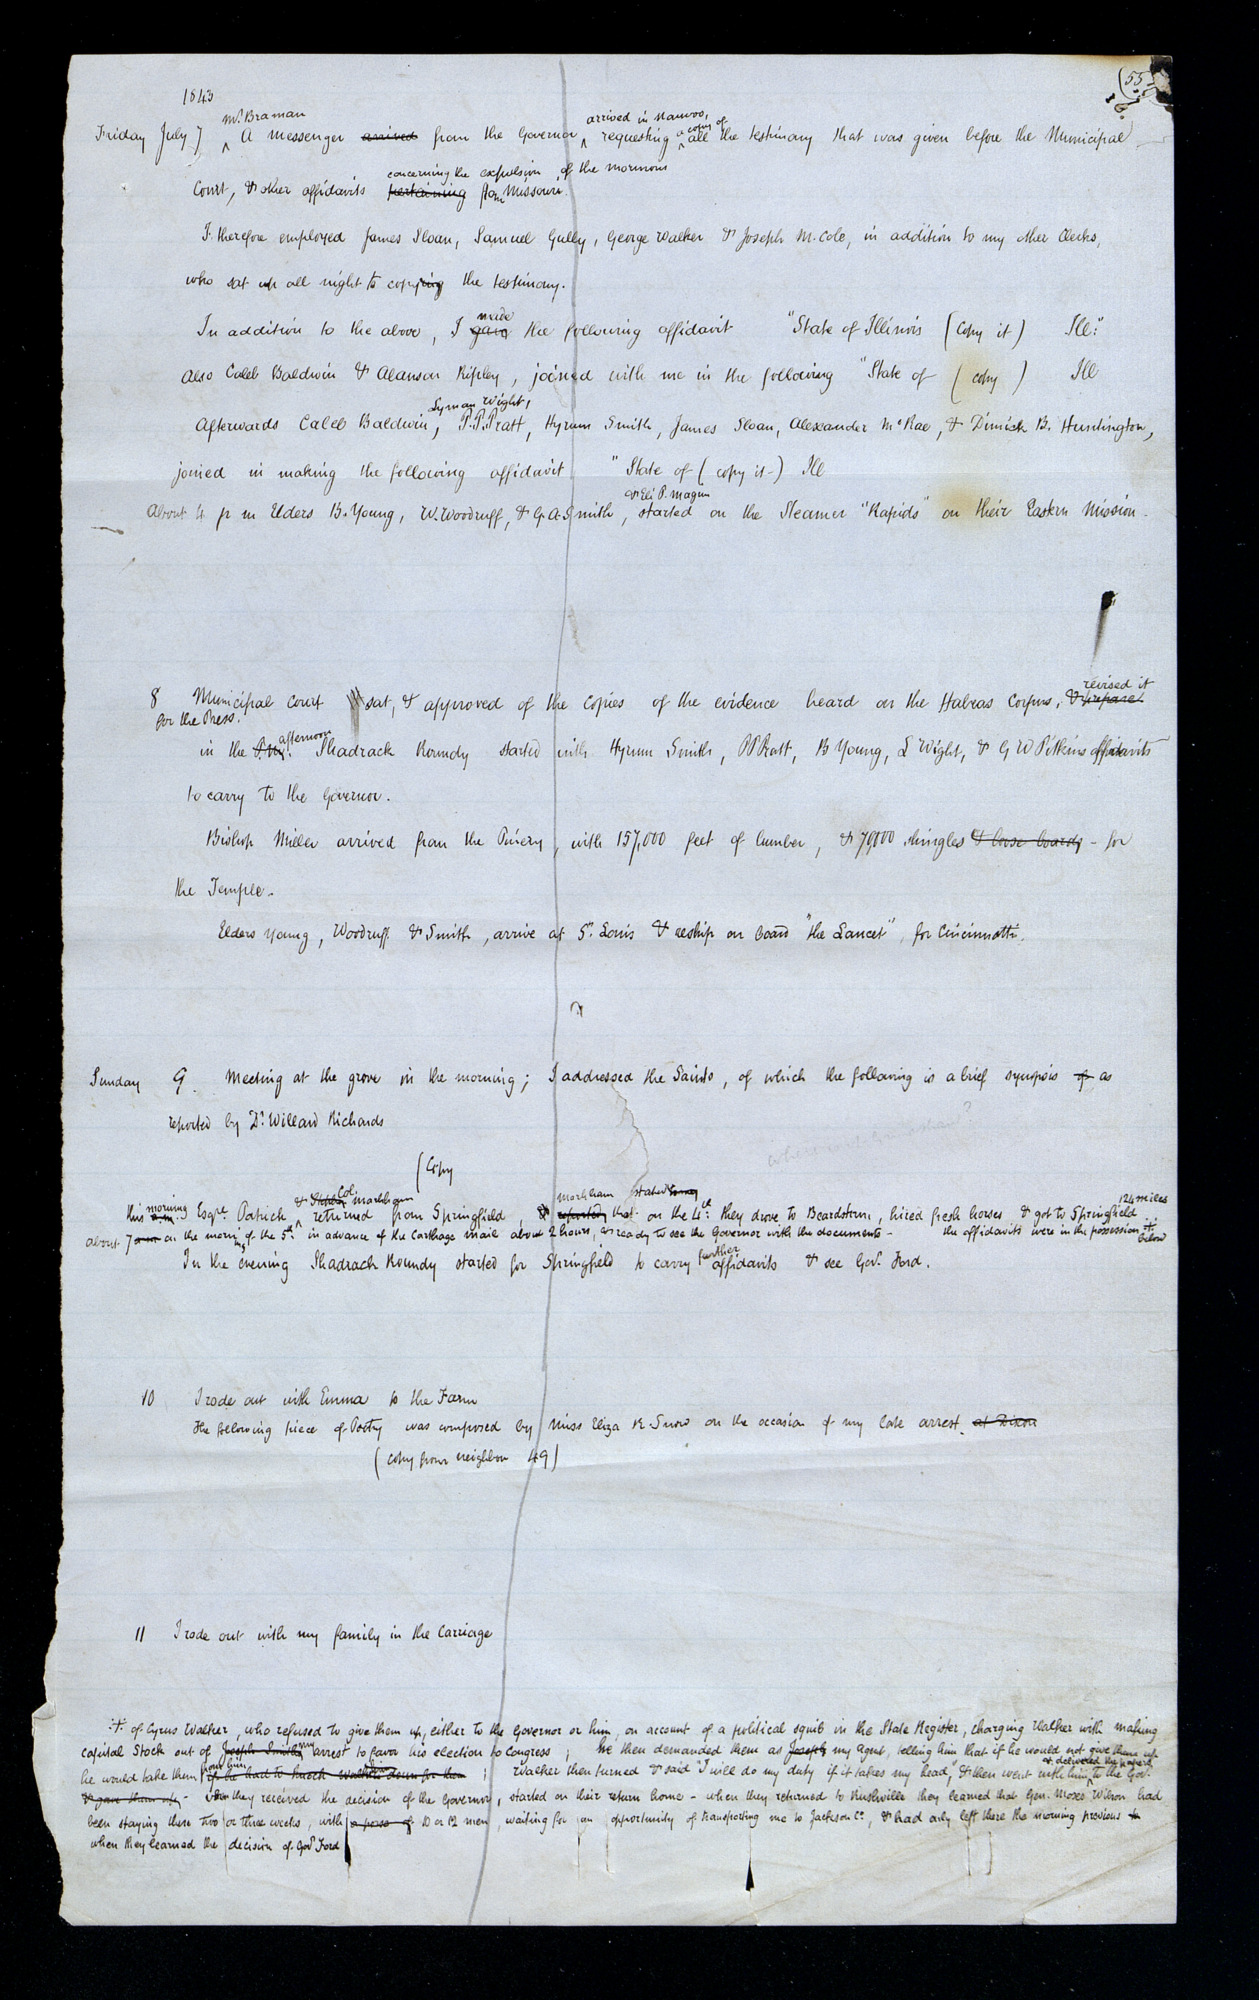 (55)
1843
Mr. Braman arrived in Nauvoo, a copy of
Friday July 7 A messenger arrived from the Governor requesting all the testimony that was given before the Municipal
concerning the expulsion of the mormons
Court, & other affidavits pertaining from Missouri.
I therefore employed James Sloan, Samuel Gully, George Walker & Joseph M. Cole, in addition to my other Clerks,
who sat up all night to copying the testimony.
made
In addition to the above, I gave the following affidavit "State of Illinois (Copy it) Ill:"
Also Caleb Baldwin & Alanson Ripley, joined with me in the following "State of (copy) Ill
Lyman Wight,
Afterwards Caleb Baldwin, P.P. Pratt, Hyrum Smith, James Sloan, Alexander McRae, & Dimick B. Huntington,
joined in making the following affidavit "State of (copy it) Ill
& Eli P. Magin
About 4 p m Elders B. Young, W. Woodruff, & G. A. Smith, started on the Steamer "Rapids" on their Eastern Mission.
revised it
8 Municipal Court sat, & approved of the copies of the evidence heard on the Habeas Corpus, & prepared
for the Press.
afternoon
in the Shadrack Roundy started with Hyrum Smith, P P Pratt, B Young, L Wight, & G W Pitkins affidavits
to carry to the Governor.
Bishop Miller arrived from the Pinery, with 157,000 feet of lumber, & 70,000 shingles & loose boards - for
the Temple.
Elders Young, Woodruff & Smith, arrive at St. Louis & reship on board "the Lancet", for Cincinnatti.
Sunday 9. Meeting at the grove in the morning; I addressed the Saints, of which the following is a brief synopsis of as
reported by Dr. Willard Richards
(Copy
& Stephen Col. markham markham stated 124 miles
this morning Esqre. Patrick returned from Springfield, & reported that on the 4th: they drove to Beardstown, hired fresh horses & got to Springfield
about 7 a m on the morng of the 5th. in advance of the Carthage mail about 2 hours, & ready to see the Governor with the documents - the affidavits were in the possession ∴ below
further
In the evening Shadrack Roundy started for Springfield to carry affidavits & see Gov. Ford.
10 I rode out with Emma to the Farm
the following piece of Poetry was composed by Miss Eliza R. Snow on the occasion of my late arrest. at Dixon
(copy from neighbor 49)
11 I rode out with my family in the Carriage
∴ of Cyrus Walker, who refused to give them up, either to the Governor or him, on account of a political squib in the State Register, charging Walker with making
capital Stock out of Joseph Smiths my arrest to favor his election to Congress; he then demanded them as Joseph my agent, telling him that if he would not give them up
from him & delivered the papers
he would take them if he had to knock Walker down for them; Walker then turned & said "I will do my duty if it takes my head, & then went with him to the Gov.
& gave them up - they received the decision of the Governor, started on their return home - when they returned to Rushville they learned that Gen. Moses Wilson had
been staying there two or three weeks, with a posse of 10 or 12 men, waiting for an opportunity of transporting me to Jackson Co., & had only left there the morning previous to
when they learned the decision of Gov Ford